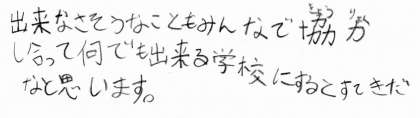 出来なさそうなこともみんなで協力
し合って何でも出来る学校にするとすてきだ
なと思います。